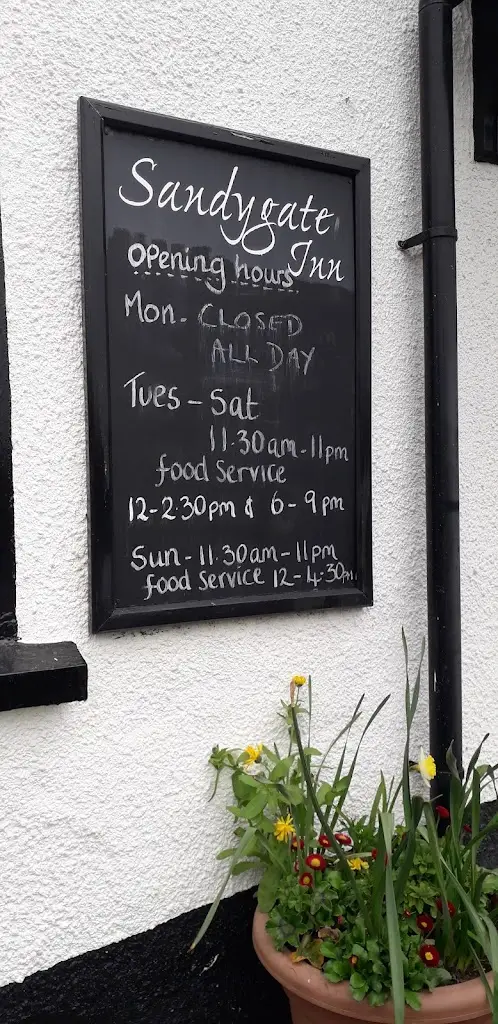 Sandygate
Inn
Opening hours
Mon - CLOSED
ALL DAY
Tues - Sat
11.30am - 11pm
food Service
12 - 2.30pm & 6 - 9pm
Sun - 11.30am - 11pm
food Service 12 - 4.30pm